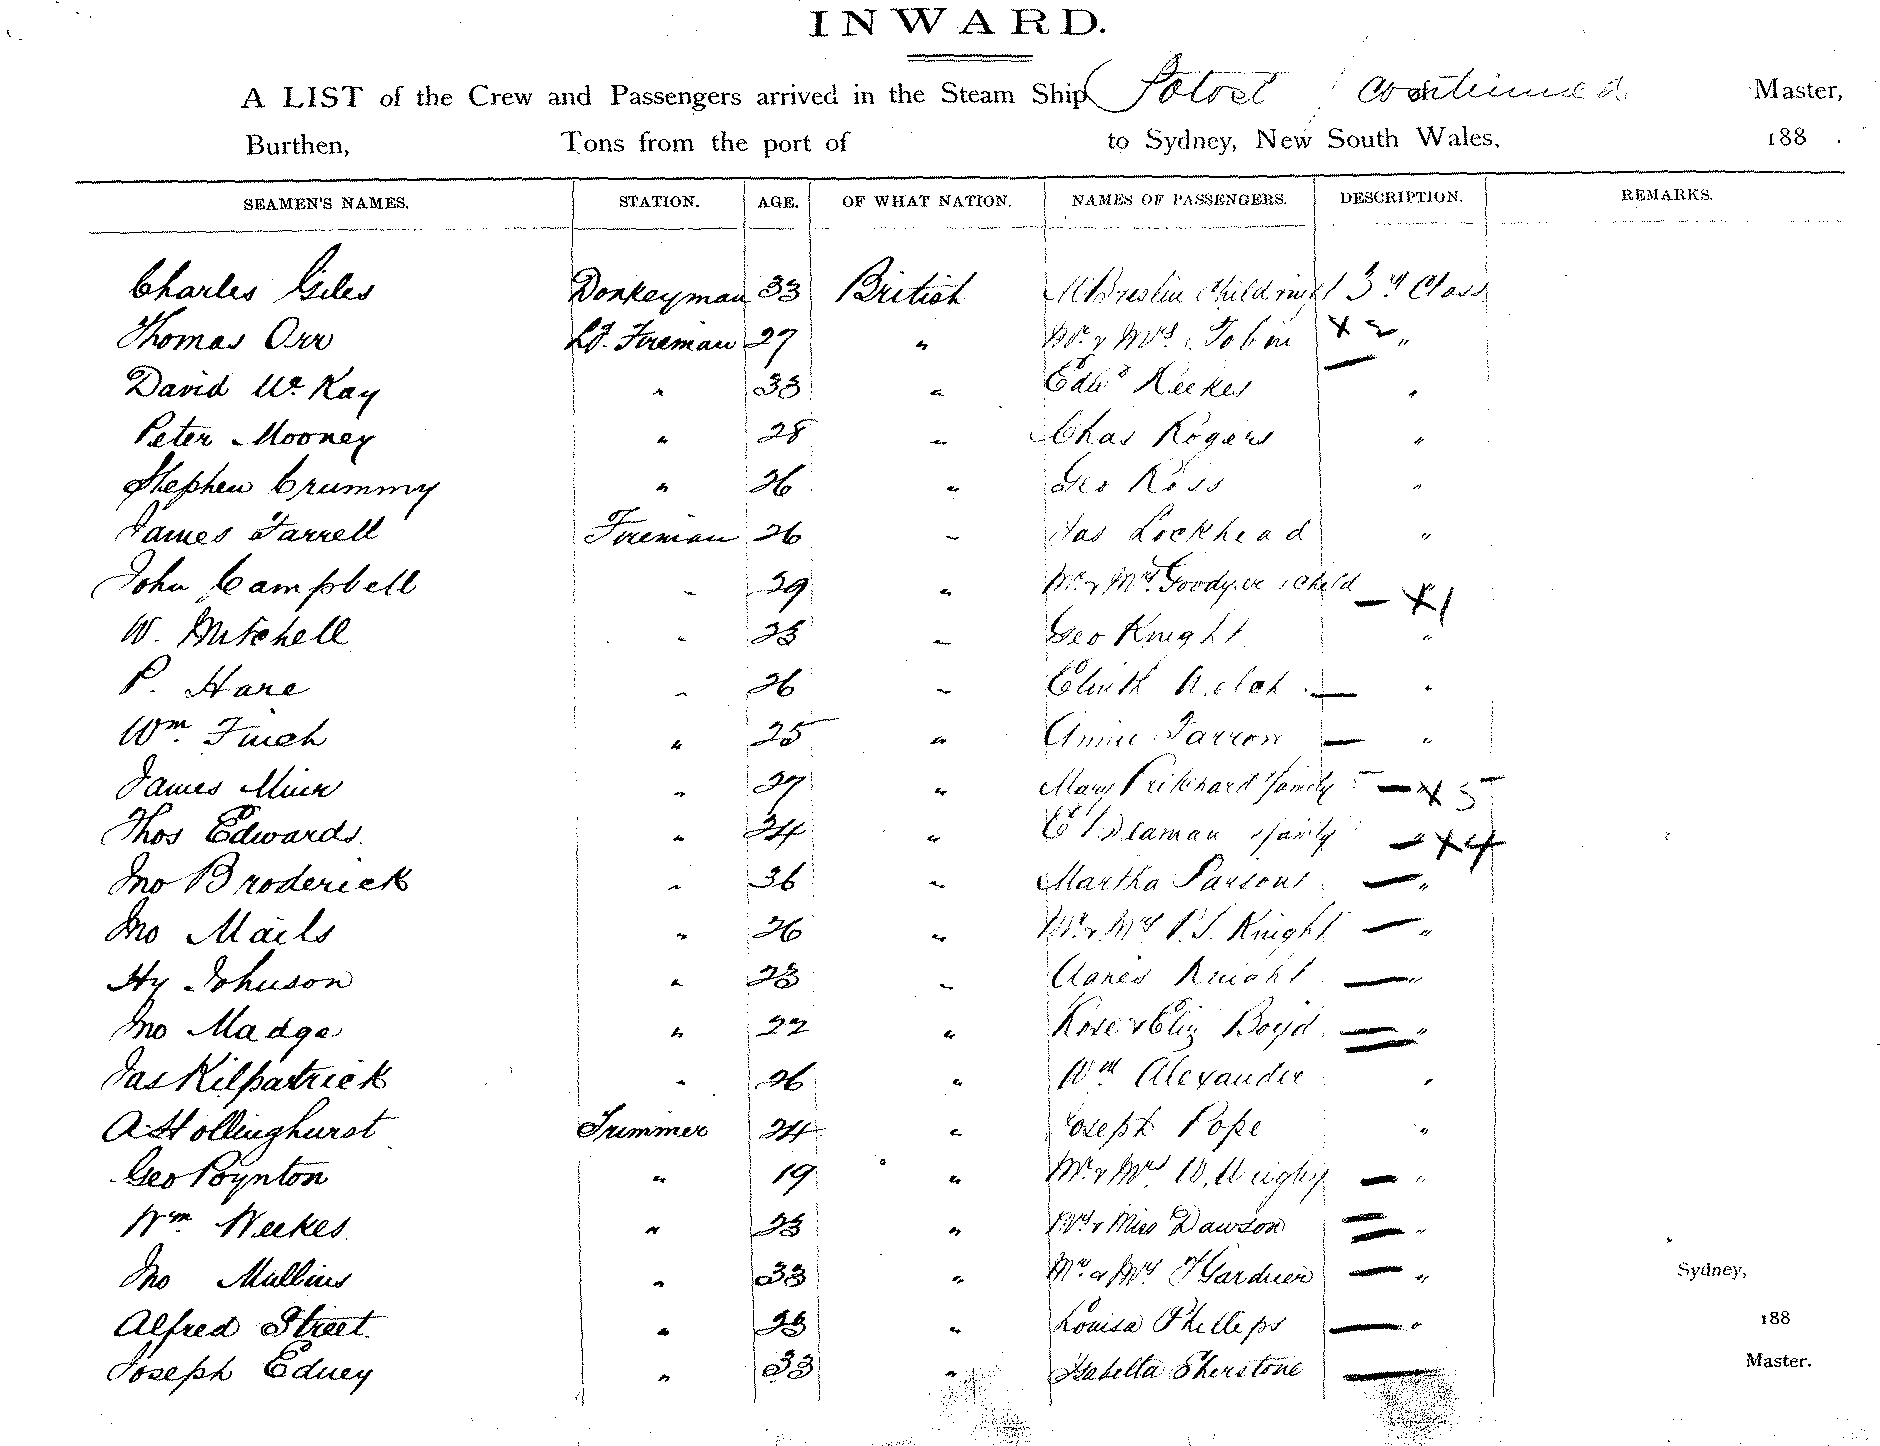 INWARD.
A LIST of the Crew and Passengers arrived in the Steam Ship (Potosi / Continued Master,
Burthen, Tons from the port of to Sydney, New South Wales, 188 .
SEAMEN'S NAMES. STATION. AGE. OF WHAT NATION. NAMES OF PASSENGERS. DESCRIPTION. REMARKS.
Charles Giles Donkeyman 33 British M Breslin Child 3rd Class
Thomas Orr Ld. Fireman 27 " Mr & Mrs Tobin X 2 "
David Mc Kay " 33 " Edwd Keekes "
Peter Mooney " 28 " Chas Rogers "
Stephen Crummy " 26 " Geo Ross "
James Farrell Fireman 26 " Jas Lockhead "
John Campbell " 29 " Mr & Mrs Goodyer 1 Child — X1
W. Mitchell " 23 " Geo Knight "
P. Hare " 26 " Elizth — "
Wm Finch " 25 " Annie Farron — "
James Muir " 27 " Mary Prikhard & family 5 — X 5
Thos Edwards " 24 " E Seaman & family — " X4
Jno Broderick " 36 " Martha Parsons — "
Jno Mails " 26 " Mr & Mrs P.S. Knight — "
Hy Johnson " 23 " Agnes Knight — "
Jno Madge " 22 " Rose & Eliz Boyd = "
Jas Kilpatrick " 26 " Wm Alexander "
A Hollinghurst Trimmer 24 " Joseph Pope "
Geo Poynton " 19 " Mr & Mrs W. — "
Wm Weekes " 23 " Mrs & Miss Dawson = "
Jno Mullins " 33 " Mr & Mrs J Gardner — "
Sydney,
Alfred Street " 23 " Louisa Phelleps — "
188
Joseph Edney " 33 " Isabella Sherstone —
Master.